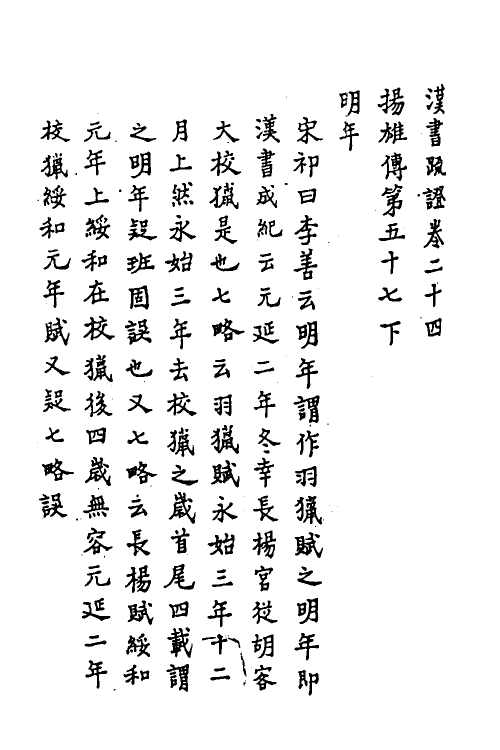 漢書疏證卷二十四
揚雄傳第五十七下
明年
宋祁曰李善云明年謂作羽獵賦之明年即
漢書成紀云元延二年冬幸長楊宮從胡客
大校獵是也七略云羽獵賦永始三年十二
月上然永始三年去校獵之歲首尾四載謂
之明年疑班固誤也又七略云長楊賦綏和
元年上綏和在校獵後四歲無容元延二年
校獵綏和元年賦又疑七略誤